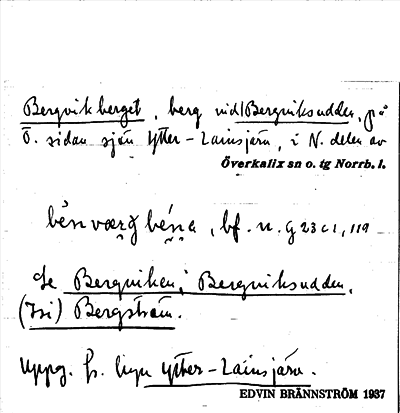 Bergvikberget, berg vid Bergviksudden, på
Ö. sidan sjön Ytter-Lainsjärv, i N. delen av
Överkalix sn o. tg Norrb. l.
bèn værg béṇa, bf. n. G 23 c 1, 119
Se Bergviken; Bergviksudden.
(Isi) Bergström.
Uppg. fr. byn Ytter-Lainsjärv.
EDVIN BRÄNNSTRÖM 1937